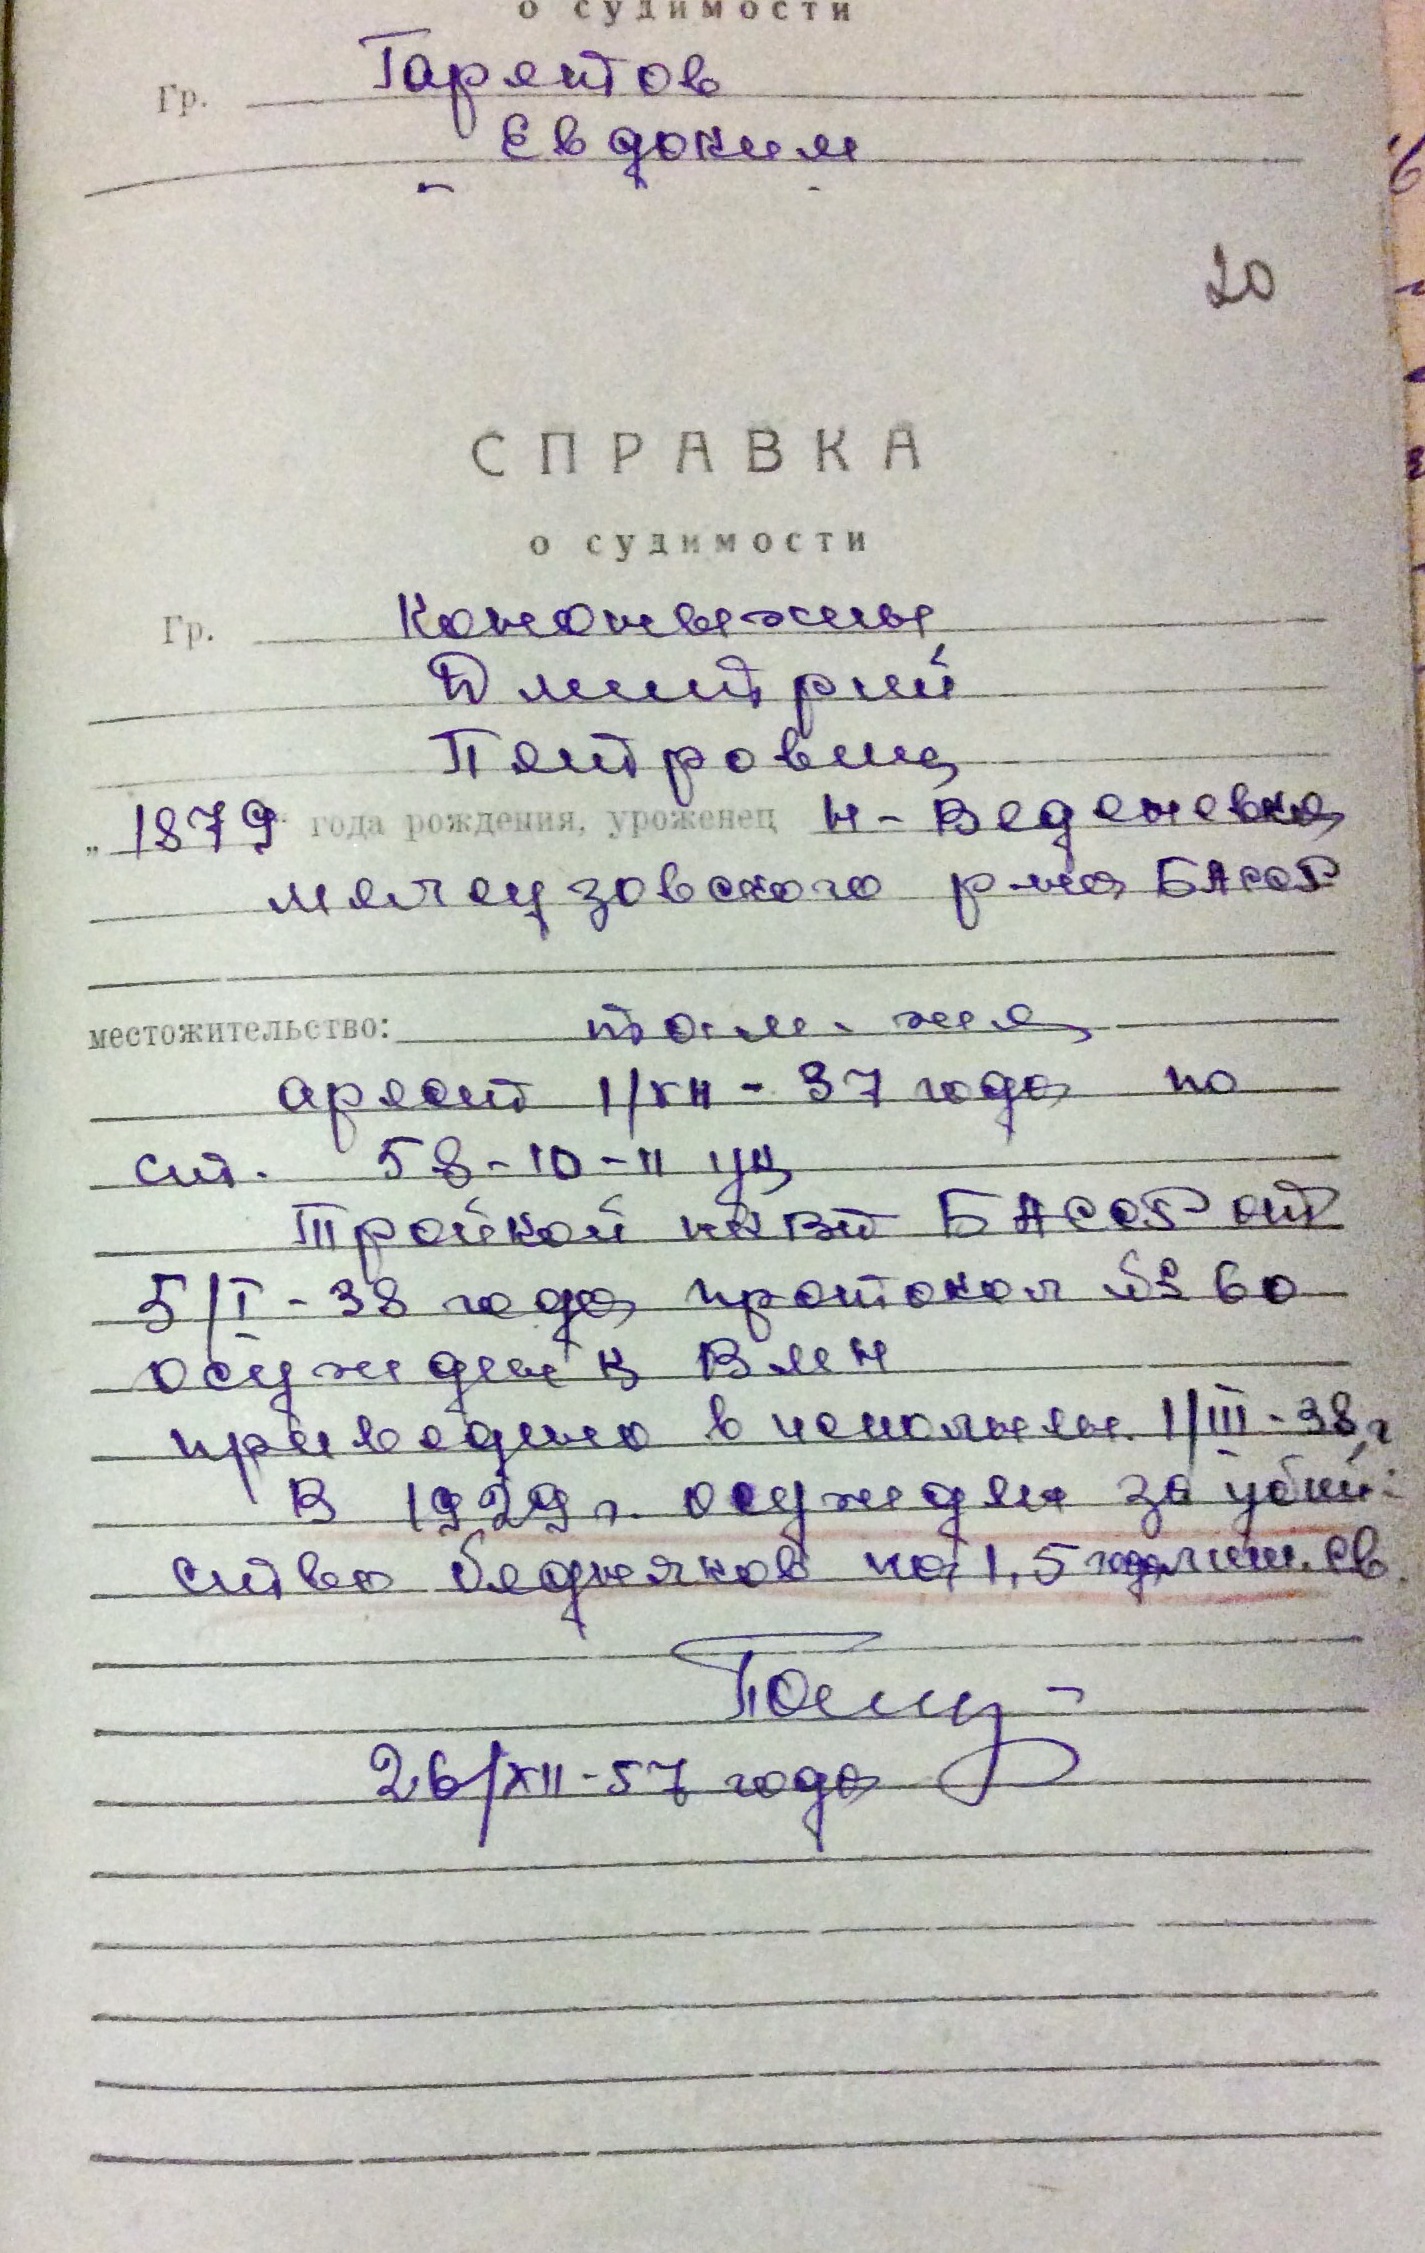 о судимости
Гр. Гарентов
Евдоким
20
СПРАВКА
о судимости
Гр.
Дмитрий
Петрович
„1879" года рождения, уроженец Н-Веденевка
Мелеузовского р-на БАССР
местожительство: там-же
арест 1/XII-37 года по
ст. 58-10-11 УК
Тройкой НКВД БАССР от
5/I-38 года протокол № 60
осужден к ВМН
приведено в исполнен. 1/III-38 г
В 1929 г. осужден за убий-
ство бедняков на 1,5 года лиш. св.
26/XII-57 года